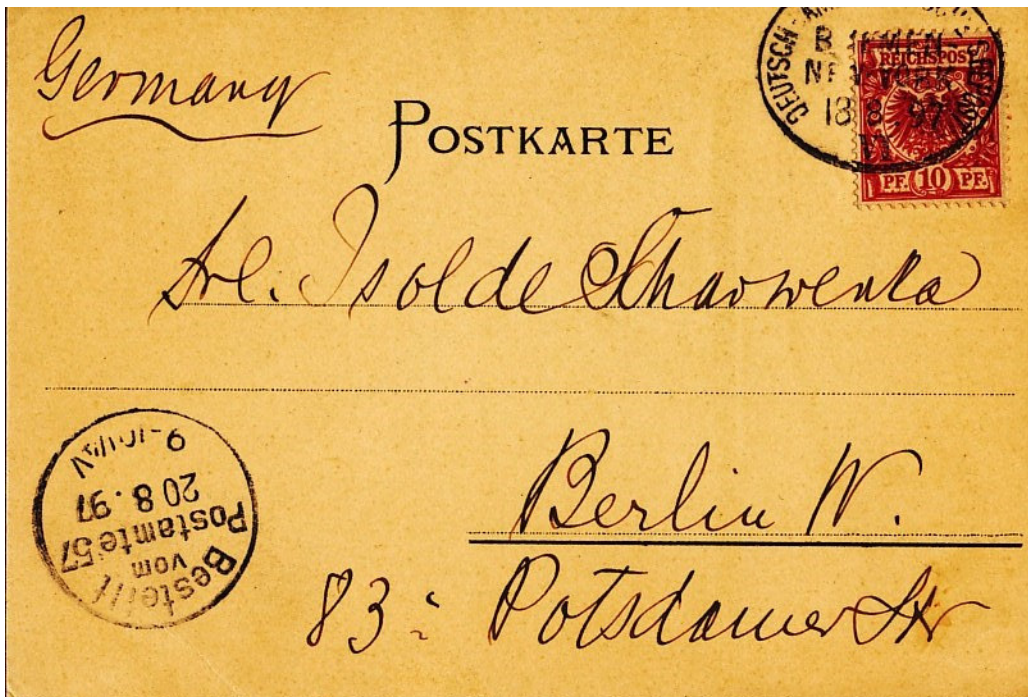 Germany
POSTKARTE
DEUTSCH-
BREMEN
NEW YORK
18 8 97
VI
REICHSPOST
PF. 10 PF.
Frl. Isolde Scharwenka
Berlin W.
83ᶜ Potsdamer Str
Bestellt
vom
Postamte 57
20 8. 97
9-10½V